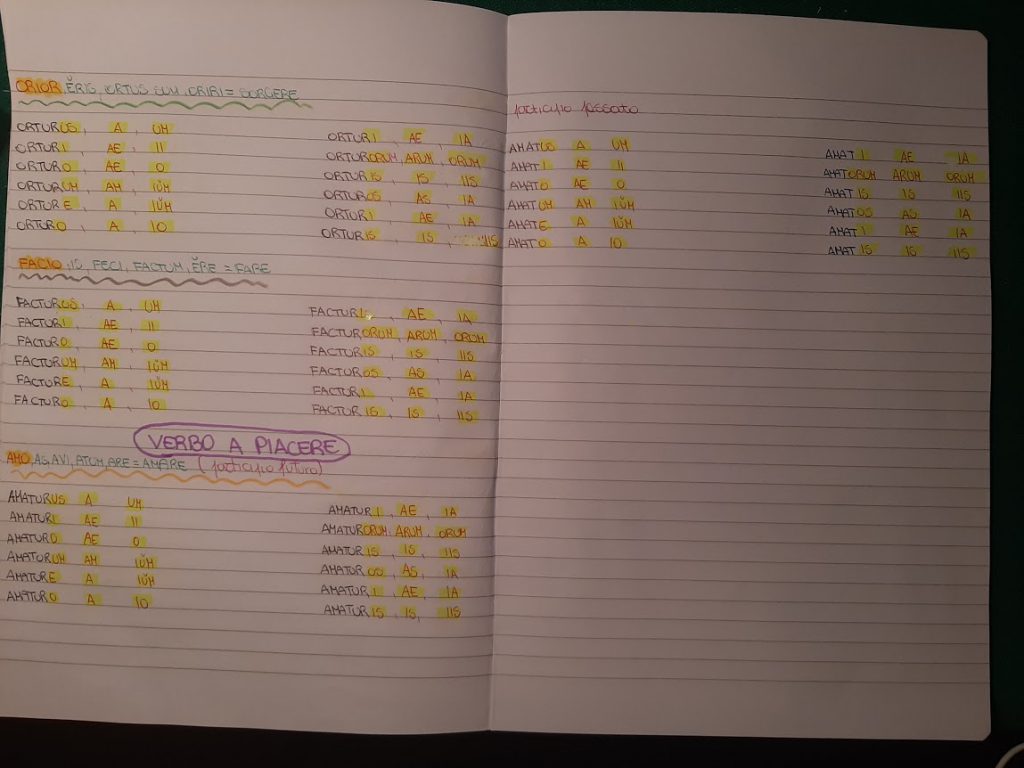 ORIOR, ĔRIS, ORTUS SUM, ORIRI = SORGERE
ORTURUS, A, UM
ORTURI, AE, II
ORTURO, AE, O
ORTURUM, AM, IŬM
ORTURE, A, IŬM
ORTURO, A, IO
ORTURI, AE, IA
ORTURORUM, ARUM, ORUM
ORTURIS, IS, IIS
ORTUROS, AS, IA
ORTURI, AE, IA
ORTURIS, IS, IIS
FACIO, IS, FECI, FACTUM, ĔRE = FARE
FACTURUS, A, UM
FACTURI, AE, II
FACTURO, AE, O
FACTURUM, AM, IŬM
FACTURE, A, IŬM
FACTURO, A, IO
FACTURI, AE, IA
FACTURORUM, ARUM, ORUM
FACTURIS, IS, IIS
FACTUROS, AS, IA
FACTURI, AE, IA
FACTURIS, IS, IIS
VERBO A PIACERE
AMO, AS, AVI, ATUM, ARE = AMARE (participio futuro)
AMATURUS A UM
AMATURI AE II
AMATURO AE O
AMATURUM AM IŬM
AMATURE A IŬM
AMATURO A IO
AMATURI, AE, IA
AMATURORUM, ARUM, ORUM
AMATURIS, IS, IIS
AMATUROS, AS, IA
AMATURI, AE, IA
AMATURIS, IS, IIS
participio passato
AMATUS A UM
AMATI AE II
AMATO AE O
AMATUM AM IŬM
AMATE A IŬM
AMATO A IO
AMATI AE IA
AMATORUM ARUM ORUM
AMATIS IS IIS
AMATOS AS IA
AMATI AE IA
AMATIS IS IIS